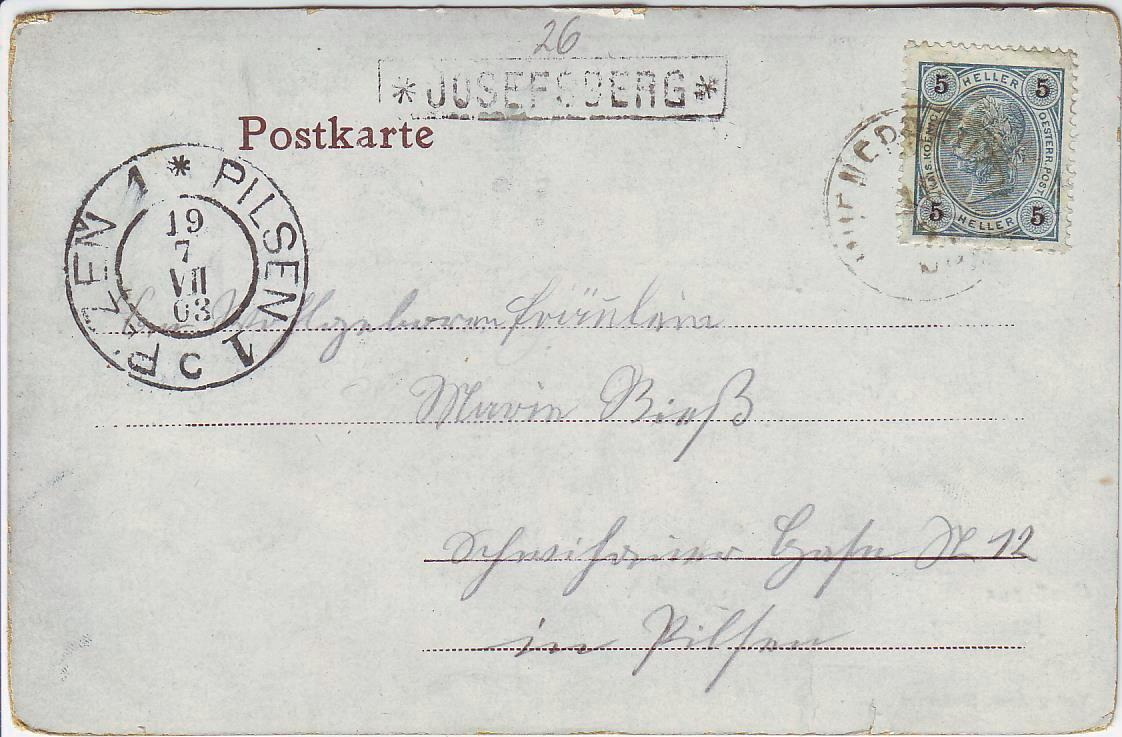 26
* JOSEFSBERG *
Postkarte
5 HELLER 5
OESTERR. POST.
5 HELLER 5
PILSEN 1
PLZEŇ 1
19
7
VII
03
Wohlgeboren Fräulein
Marie Bieß
Schwihauer Gasse N 12
in Pilsen